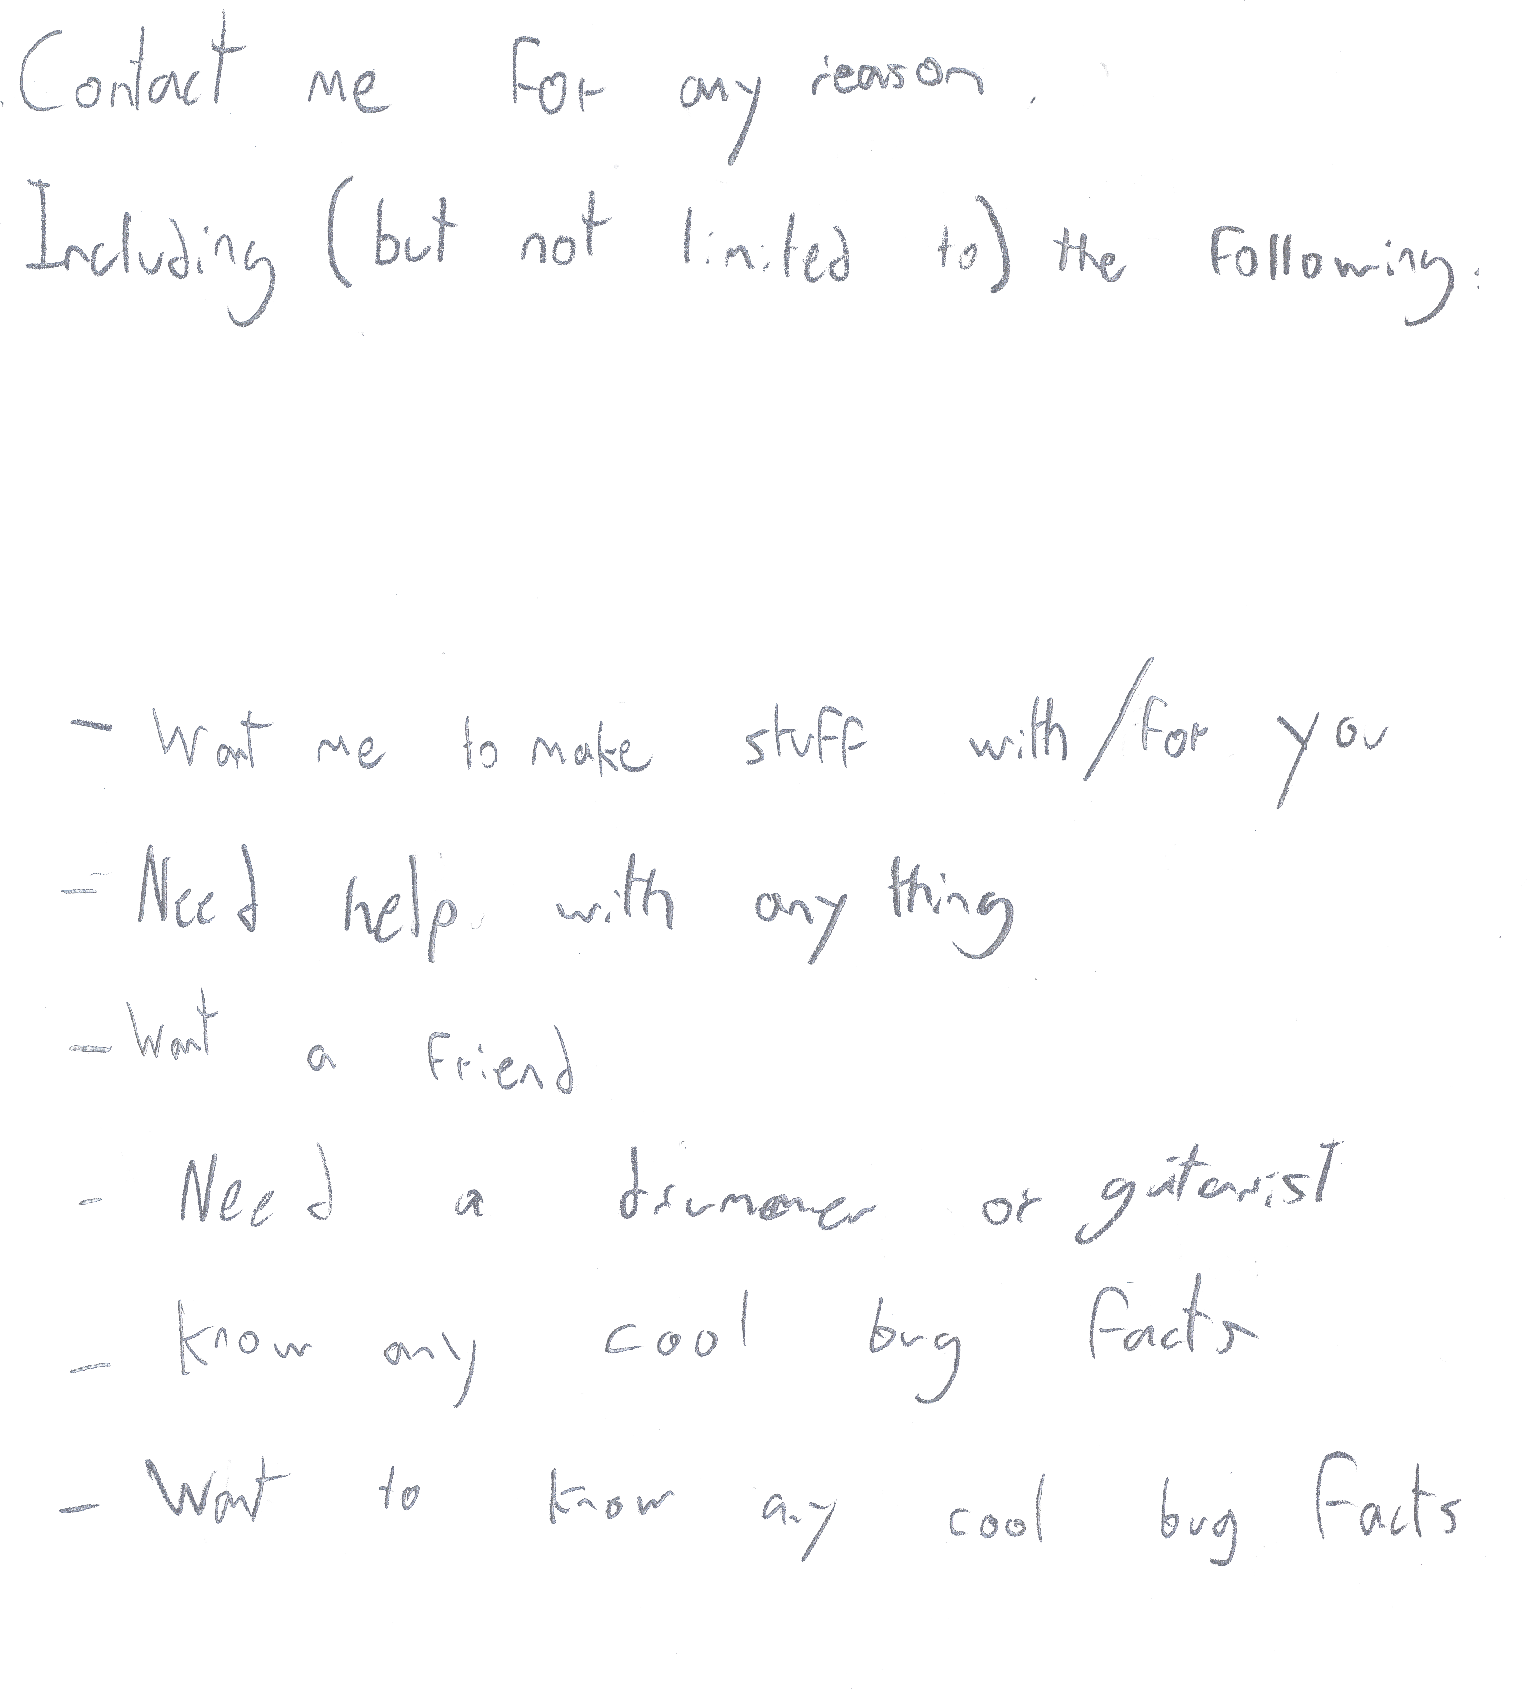 Contact me For any reason.
Including (but not limited to) the Following:
- Want me to make stuff with/for you
- Need help with any thing
- Want a Friend
- Need a drummer or guitarist
- Know any cool bug facts
- Want to know any cool bug Facts